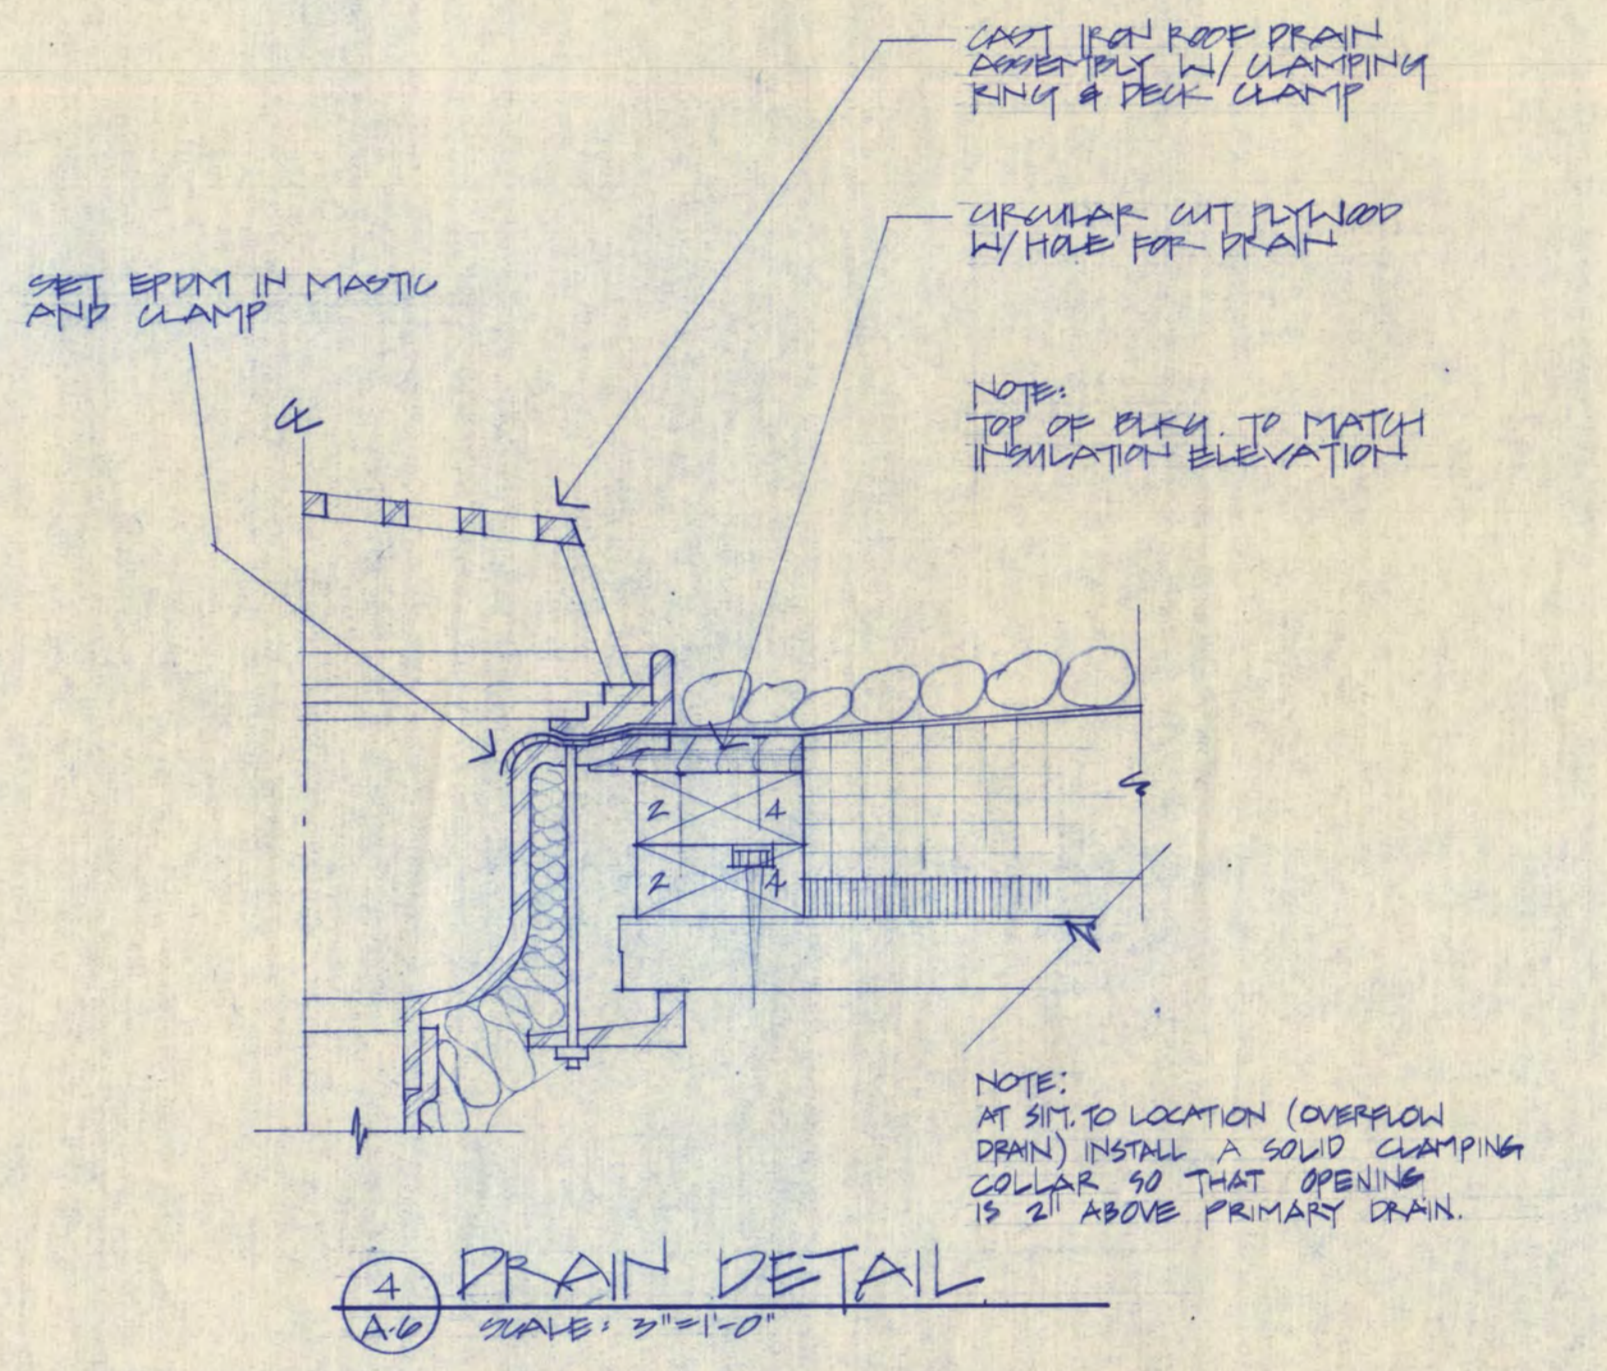 CAST IRON ROOF DRAIN
ASSEMBLY W/ CLAMPING
RING & DECK CLAMP
CIRCULAR CUT PLYWOOD
W/ HOLE FOR DRAIN
SET EPDM IN MASTIC
AND CLAMP
NOTE:
TOP OF BLKG. TO MATCH
INSULATION ELEVATION
℄
2 4
2 4
NOTE:
AT SIM. TO LOCATION (OVERFLOW
DRAIN) INSTALL A SOLID CLAMPING
COLLAR SO THAT OPENING
IS 2" ABOVE PRIMARY DRAIN.
4
A-6
DRAIN DETAIL
SCALE: 3"=1'-0"